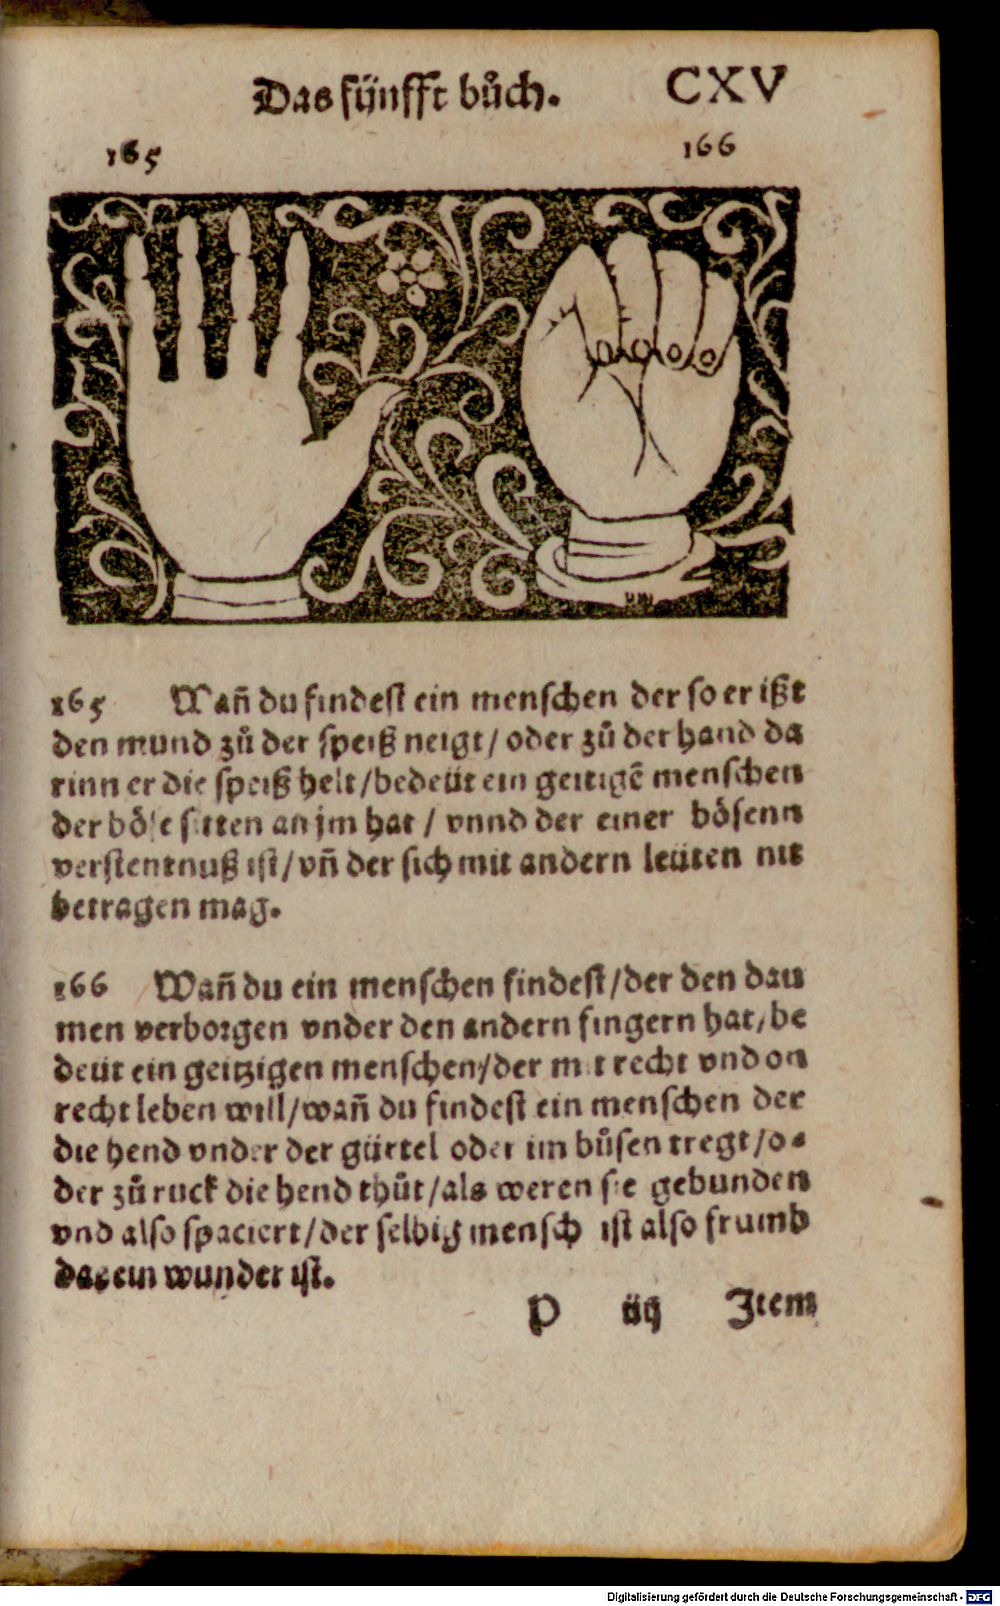 Das fünfft bůch. CXV
165 166
165 Wañ du findest ein menschen der so er ißt
den mund zů der speiß neigt/ oder zů der hand da
rinn er die speiß helt/bedeüt ein geitigẽ menschen
der böse sitten an jm hat / vnnd der einer bösenn
verstentnuß ist/ vñ der sich mit andern leüten nit
betragen mag.
166 Wañ du ein menschen findest/der den dau
men verborgen vnder den andern fingern hat/be
deüt ein geitzigen menschen/der mit recht vnd on
recht leben will/wañ du findest ein menschen der
die hend vnder der gürtel oder im bůsen tregt/o-
der zů ruck die hend thůt/als weren sie gebunden
vnd also spaciert/der selbig mensch ist also frumb
das ein wunder ist.
P iij Item
Digitalisierung gefördert durch die Deutsche Forschungsgemeinschaft - DFG